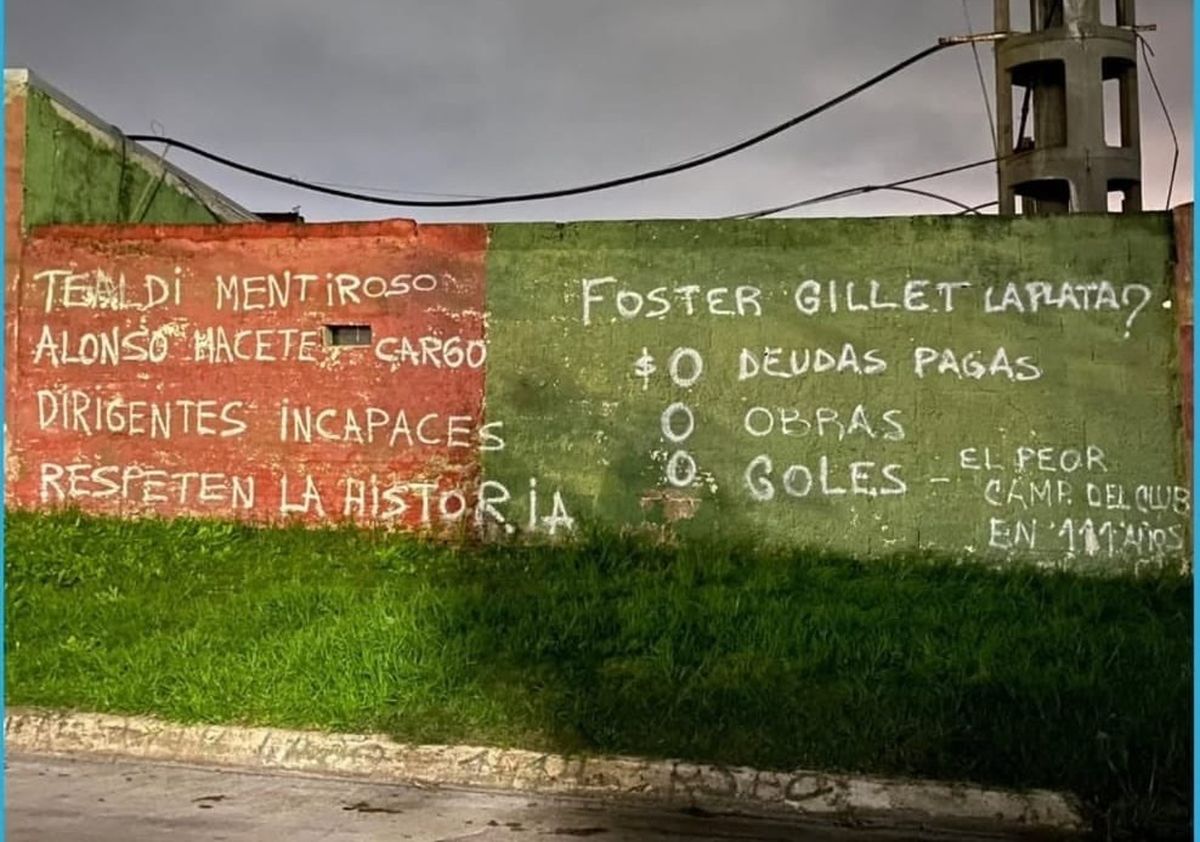 TEALDi MENTiROSO
ALONSO HACETE CARGO
DIRIGENTES iNCAPACES
RESPETEN LA HiSTORiA
FOSTER GILLET LAPLATA?
$0 DEUDAS PAGAS
0 OBRAS
0 GOLES - EL PEOR
CAMP. DEL CLUB
EN 111 AÑOS